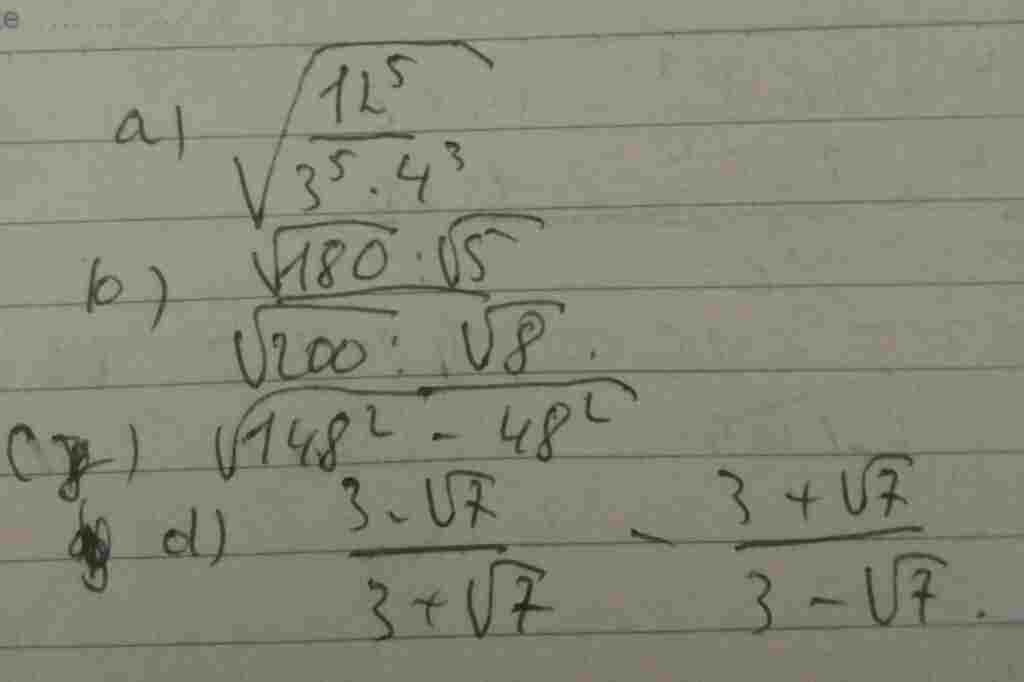 e
a) √(12⁵ / (3⁵ . 4³))
b) (√180 : √5) / (√200 : √8) .
c) √(148² - 48²)
d) (3 - √7) / (3 + √7) - (3 + √7) / (3 - √7) .